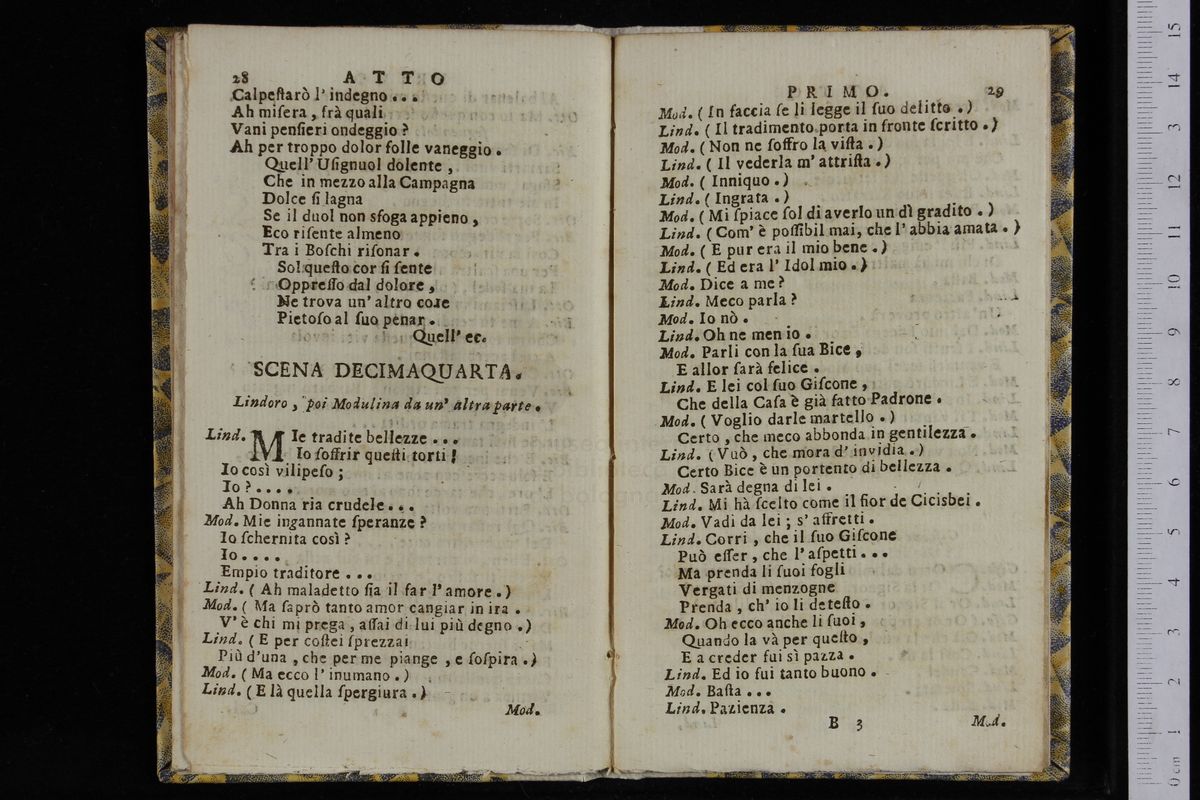 28 ATTO
Calpeſtarò l' indegno...
Ah miſera, frà quali
Vani penſieri ondeggio?
Ah per troppo dolor folle vaneggio.
Quell' Uſignuol dolente,
Che in mezzo alla Campagna
Dolce ſi lagna
Se il duol non sfoga appieno,
Eco riſente almeno
Tra i Boſchi riſonar.
Sol queſto cor ſi ſente
Oppreſſo dal dolore,
Ne trova un' altro core
Pietoſo al ſuo penar.
Quell' ec.
SCENA DECIMAQUARTA.
Lindoro, poi Modulina da un' altra parte.
Lind. MIe tradite bellezze...
Io ſoffrir queſti torti!
Io così vilipeſo;
Io?....
Ah Donna ria crudele...
Mod. Mie ingannate ſperanze?
Io ſchernita così?
Io....
Empio traditore...
Lind. (Ah maladetto ſia il far l'amore.)
Mod. (Ma ſaprò tanto amor cangiar in ira.
V'è chi mi prega, aſſai di lui più degno.)
Lind. (E per coſtei ſprezzai
Più d'una, che per me piange, e ſoſpira.)
Mod. (Ma ecco l'inumano.)
Lind. (E là quella ſpergiura.)
Mod.
PRIMO. 29
Mod. (In faccia ſe li legge il ſuo delitto.)
Lind. (Il tradimento porta in fronte ſcritto.)
Mod. (Non ne ſoffro la viſta.)
Lind. (Il vederla m'attriſta.)
Mod. (Inniquo.)
Lind. (Ingrata.)
Mod. (Mi ſpiace ſol di averlo un dì gradito.)
Lind. (Com' è poſſibil mai, che l'abbia amata.)
Mod. (E pur era il mio bene.)
Lind. (Ed era l' Idol mio.)
Mod. Dice a me?
Lind. Meco parla?
Mod. Io nò.
Lind. Oh ne men io.
Mod. Parli con la ſua Bice,
E allor ſarà felice.
Lind. E lei col ſuo Giſcone,
Che della Caſa è già fatto Padrone.
Mod. (Voglio darle martello.)
Certo, che meco abbonda in gentilezza.
Lind. (Vuò, che mora d'invidia.)
Certo Bice è un portento di bellezza.
Mod. Sarà degna di lei.
Lind. Mi hà ſcelto come il fior de Cicisbei.
Mod. Vadi da lei; s'affretti.
Lind. Corri, che il ſuo Giſcone
Può eſſer, che l'aſpetti...
Ma prenda li ſuoi fogli
Vergati di menzogne
Prenda, ch' io li deteſto.
Mod. Oh ecco anche li ſuoi,
Quando la và per queſto,
E a creder fui sì pazza.
Lind. Ed io fui tanto buono.
Mod. Baſta...
Lind. Pazienza.
B 3 Mod.